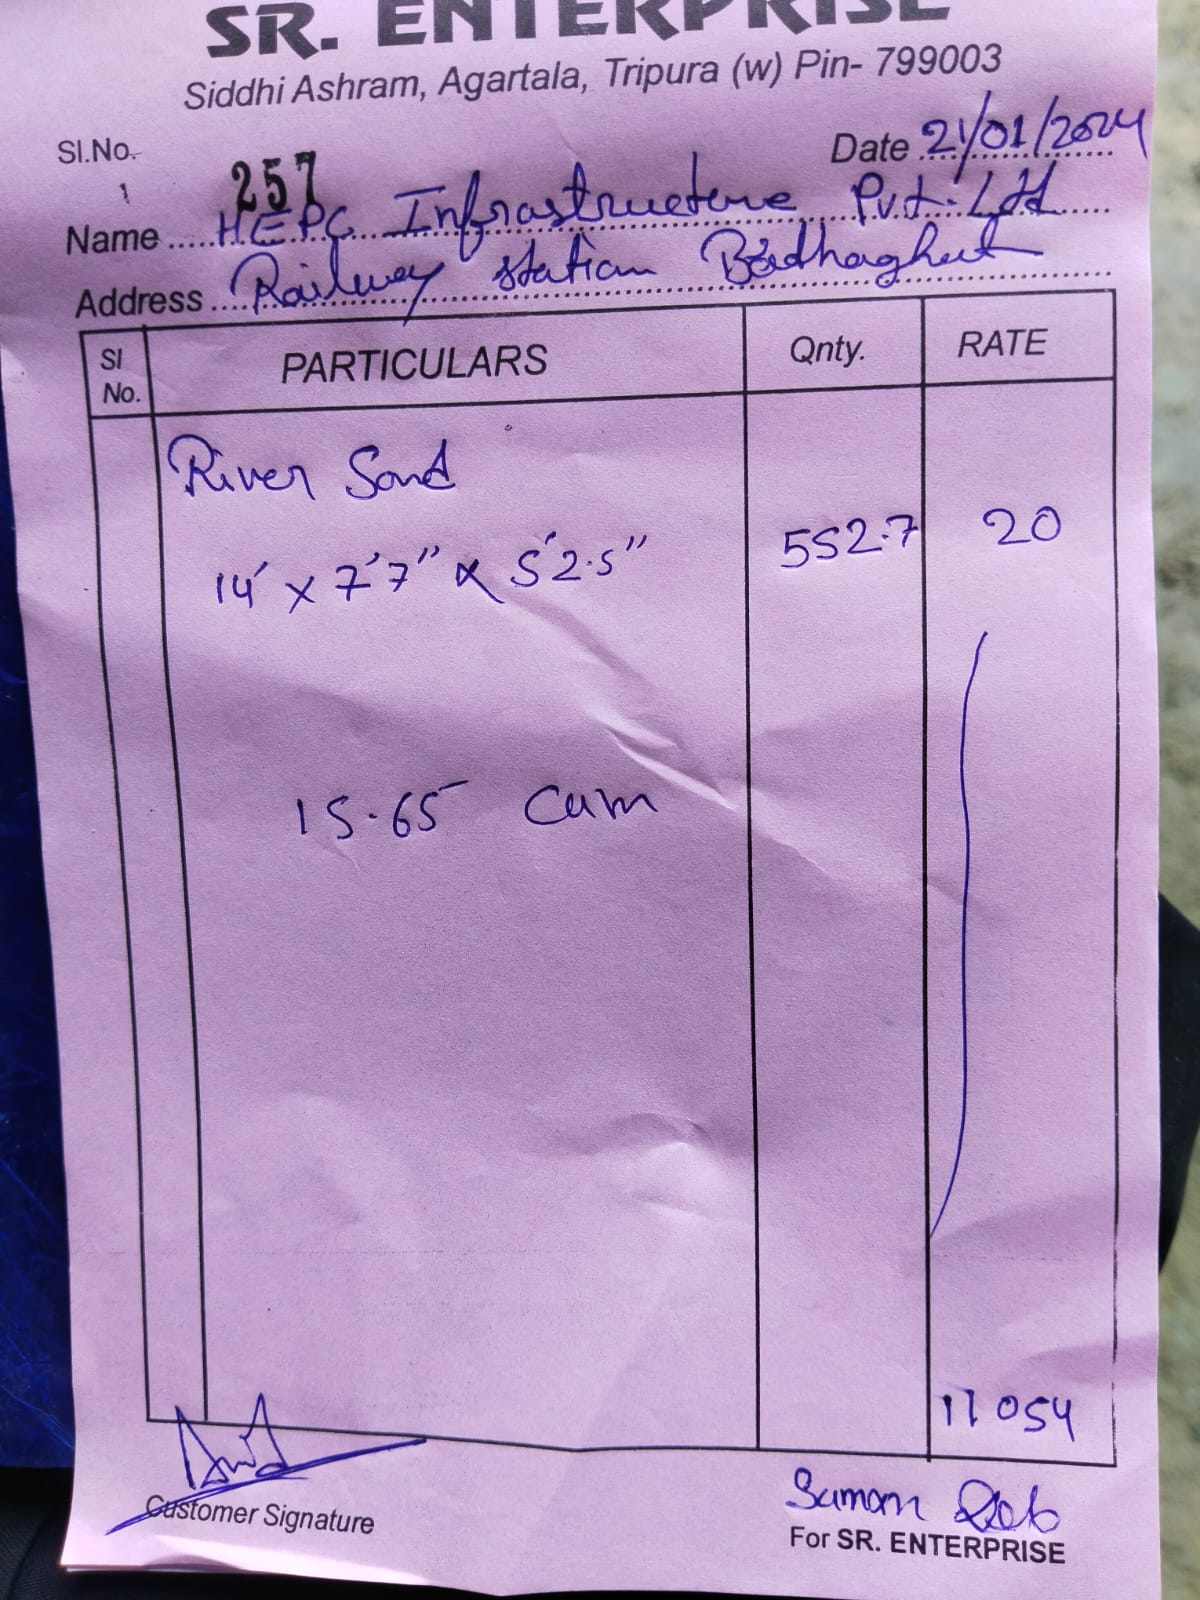 SR. ENTERPRISE
Siddhi Ashram, Agartala, Tripura (w) Pin- 799003
Sl.No. 257 Date 21/01/2024
1
Name HEPC Infrastructure Pvt. Ltd
Address Railway station Badhaghat
Sl No. PARTICULARS Qnty. RATE
River Sand
14' x 7'7" x 5'2.5" 552.7 20
15.65 Cum
11054
Suman Deb
Customer Signature
For SR. ENTERPRISE